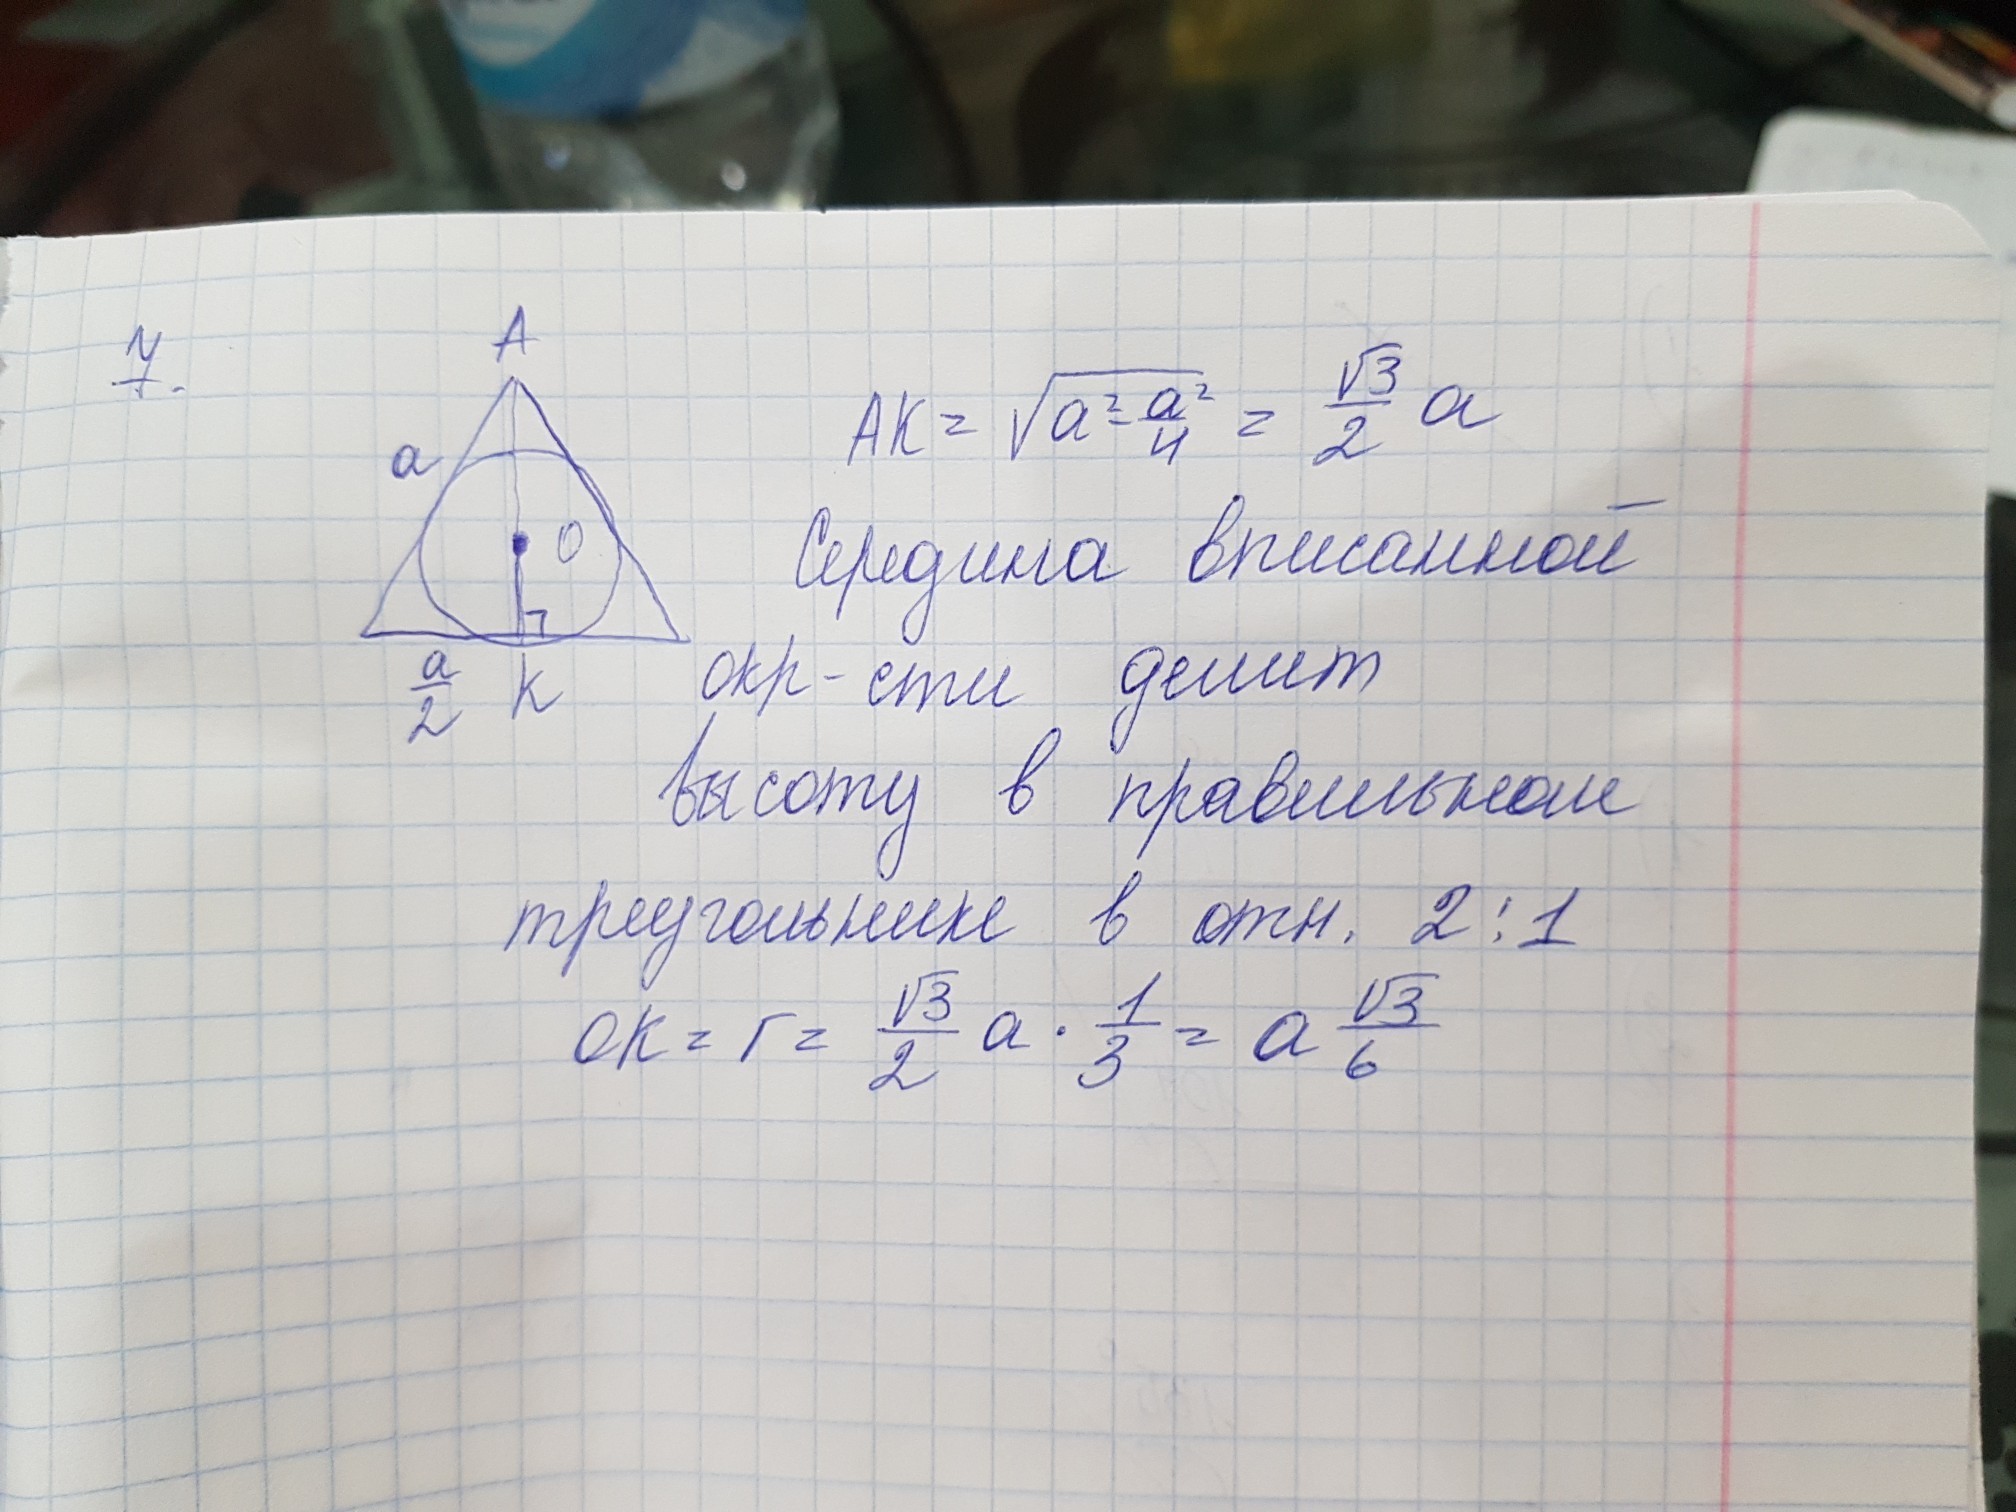 7.
A
a
O
a/2 K
AK = √(a² - a²/4) = √3/2 a
Середина вписанной
окр-сти делит
высоту в правильном
треугольнике в отн. 2:1
OK = r = √3/2 a · 1/3 = a √3/6